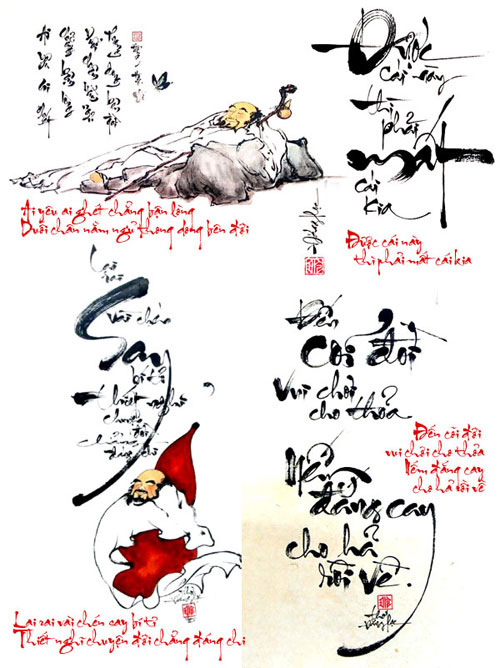 Được
cái này
thì phải
mất
cái
kia
Ai yêu ai ghét chẳng bận lòng
Duỗi chân nằm ngủ thong dong bên đời
Được cái này
thì phải mất cái kia
Lai
rai
vài chén
Say
bí tỉ
thiết nghĩ
chuyện
đời
chẳng
đáng chi
Đến
cõi đời
vui chơi
cho thỏa
Đến cõi đời
vui chơi cho thỏa
Nếm đắng cay
cho hả rồi về
Nếm
đắng cay
cho hả
rồi về.
Lai rai vài chén say bí tỉ
Thiết nghĩ chuyện đời chẳng đáng chi